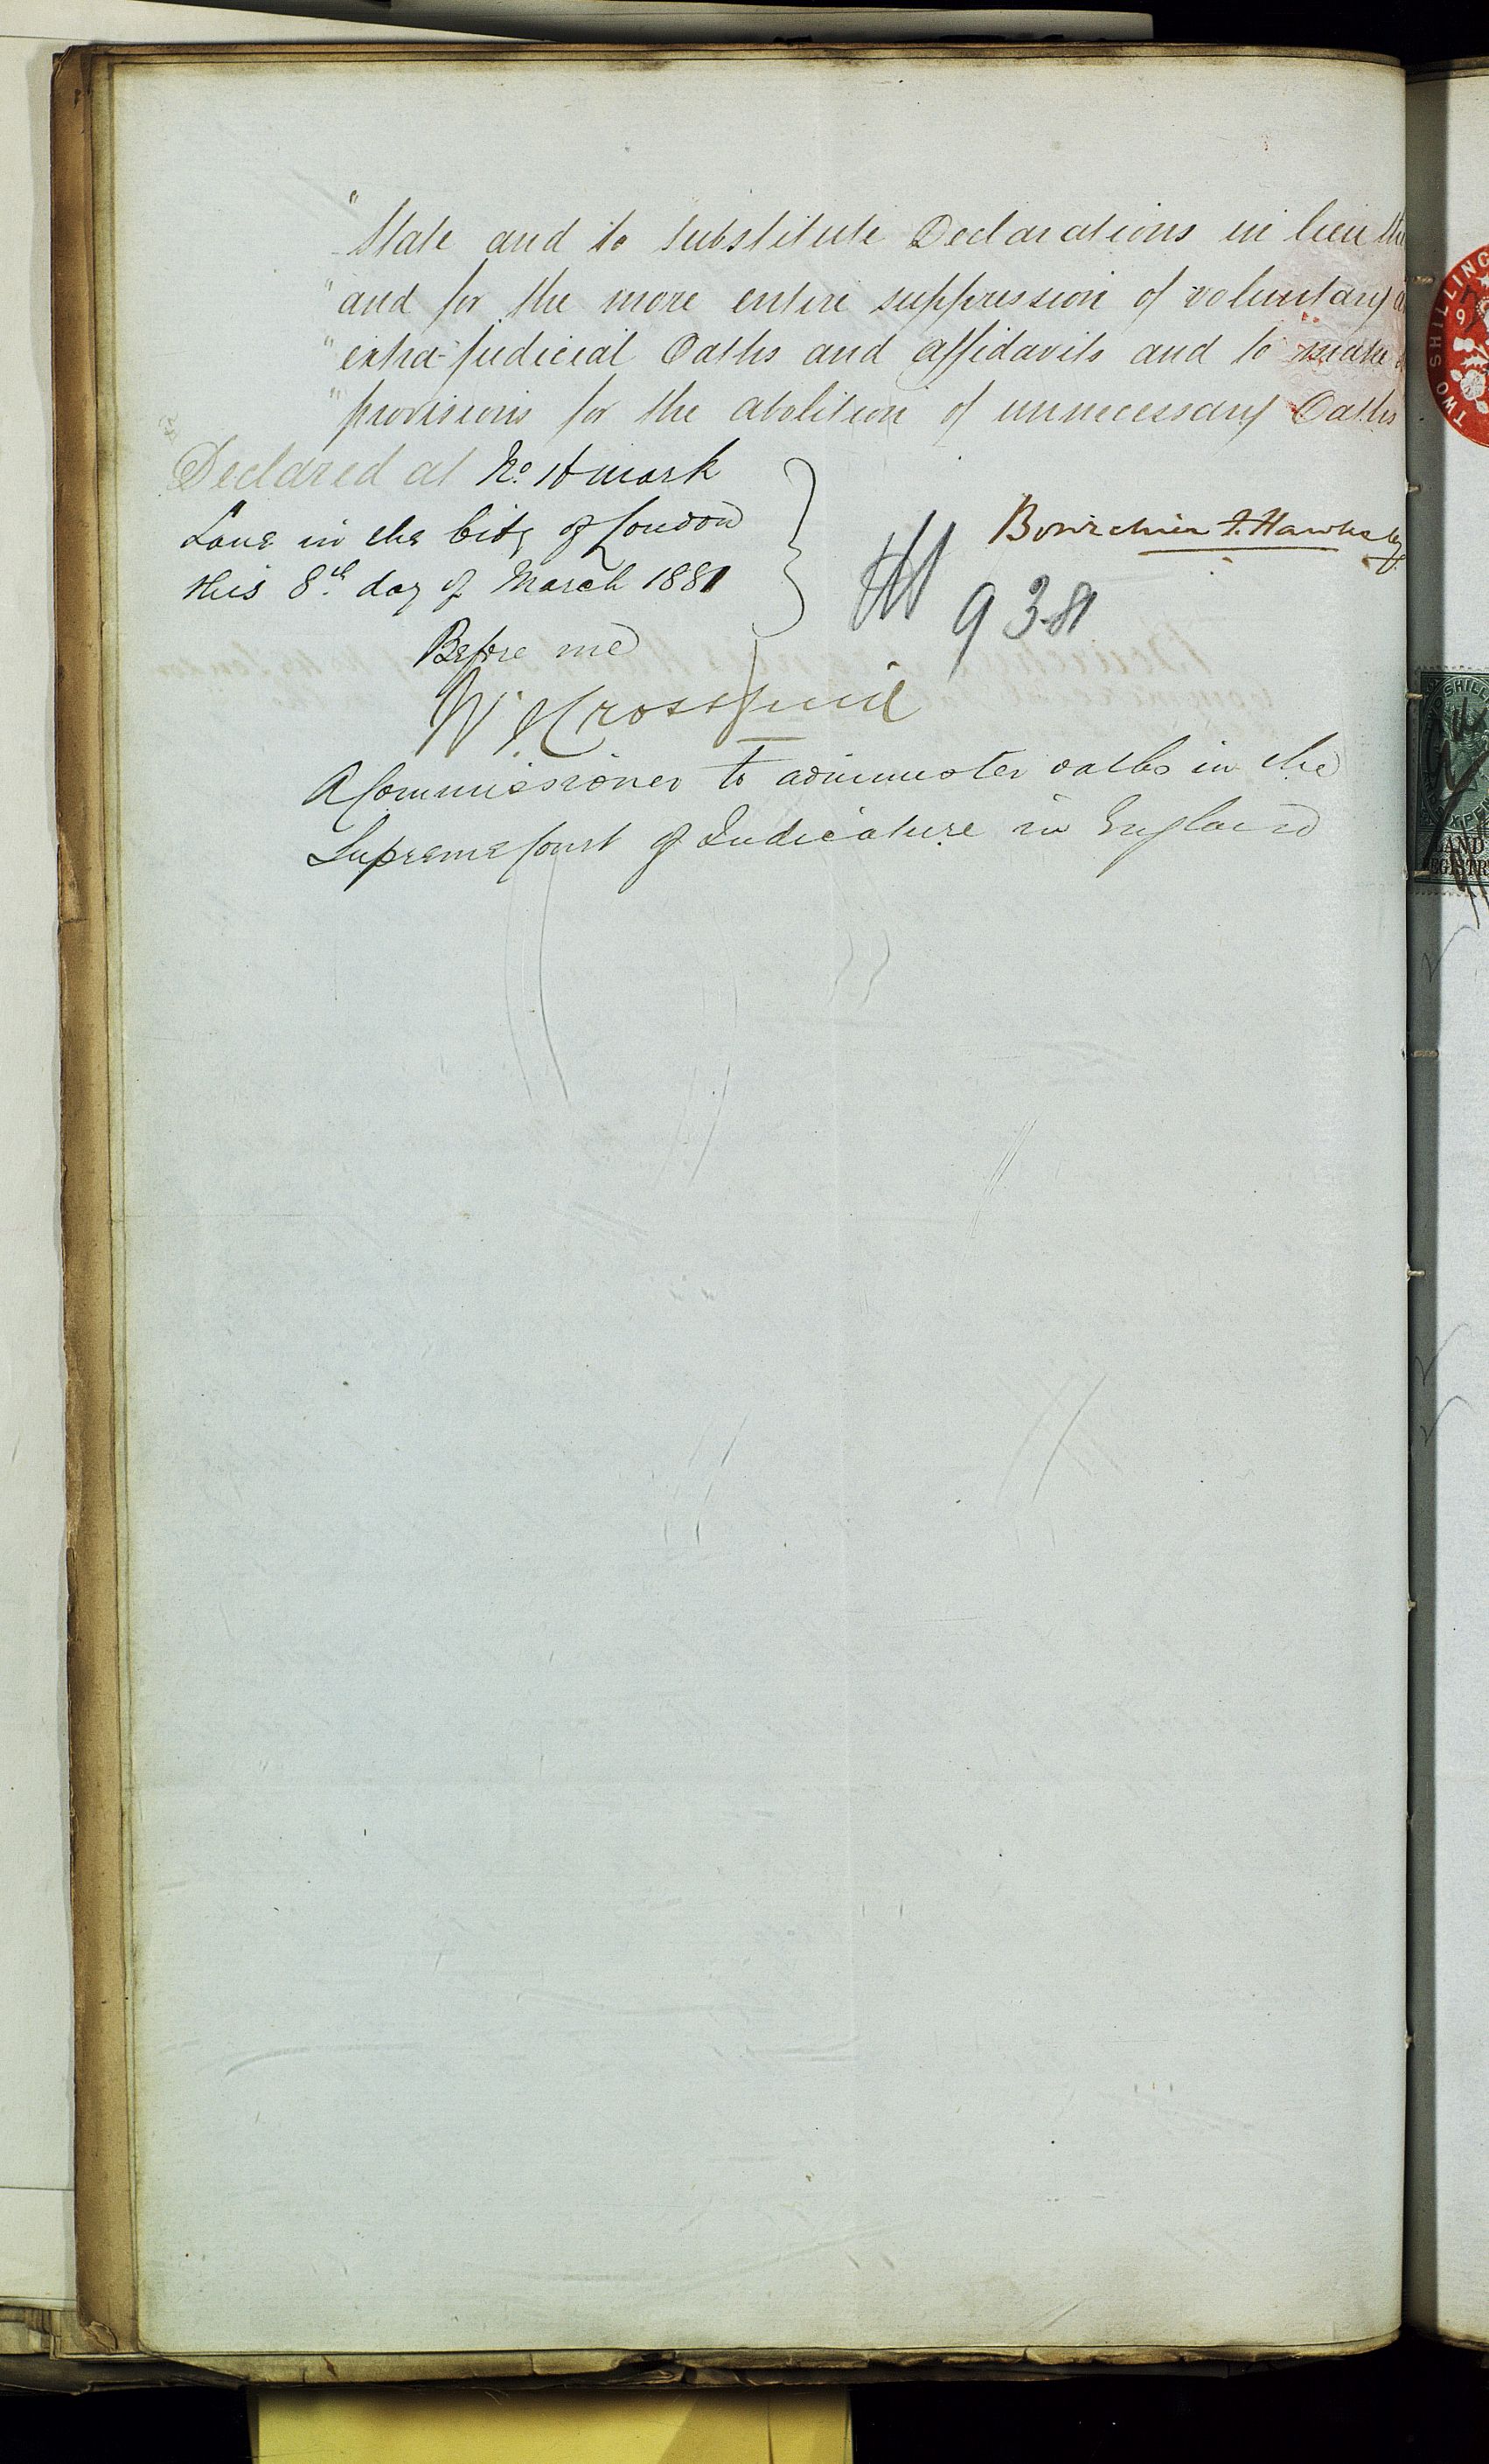 "State and to substitute Declarations in lieu the
"and for the more entire suppression of voluntary a
"extra-judicial Oaths and affidavits and to make
"provisions for the abolition of unnecessary Oaths
Declared at No. mark
Lane in the City of London
this 8th day of March 1881
Before me
A Commissioner to administer oaths in the
Supreme Court of Judicature in England
Bourchier F. Hawksley
9 3 81
TWO SHILLING
LAND
REGISTR